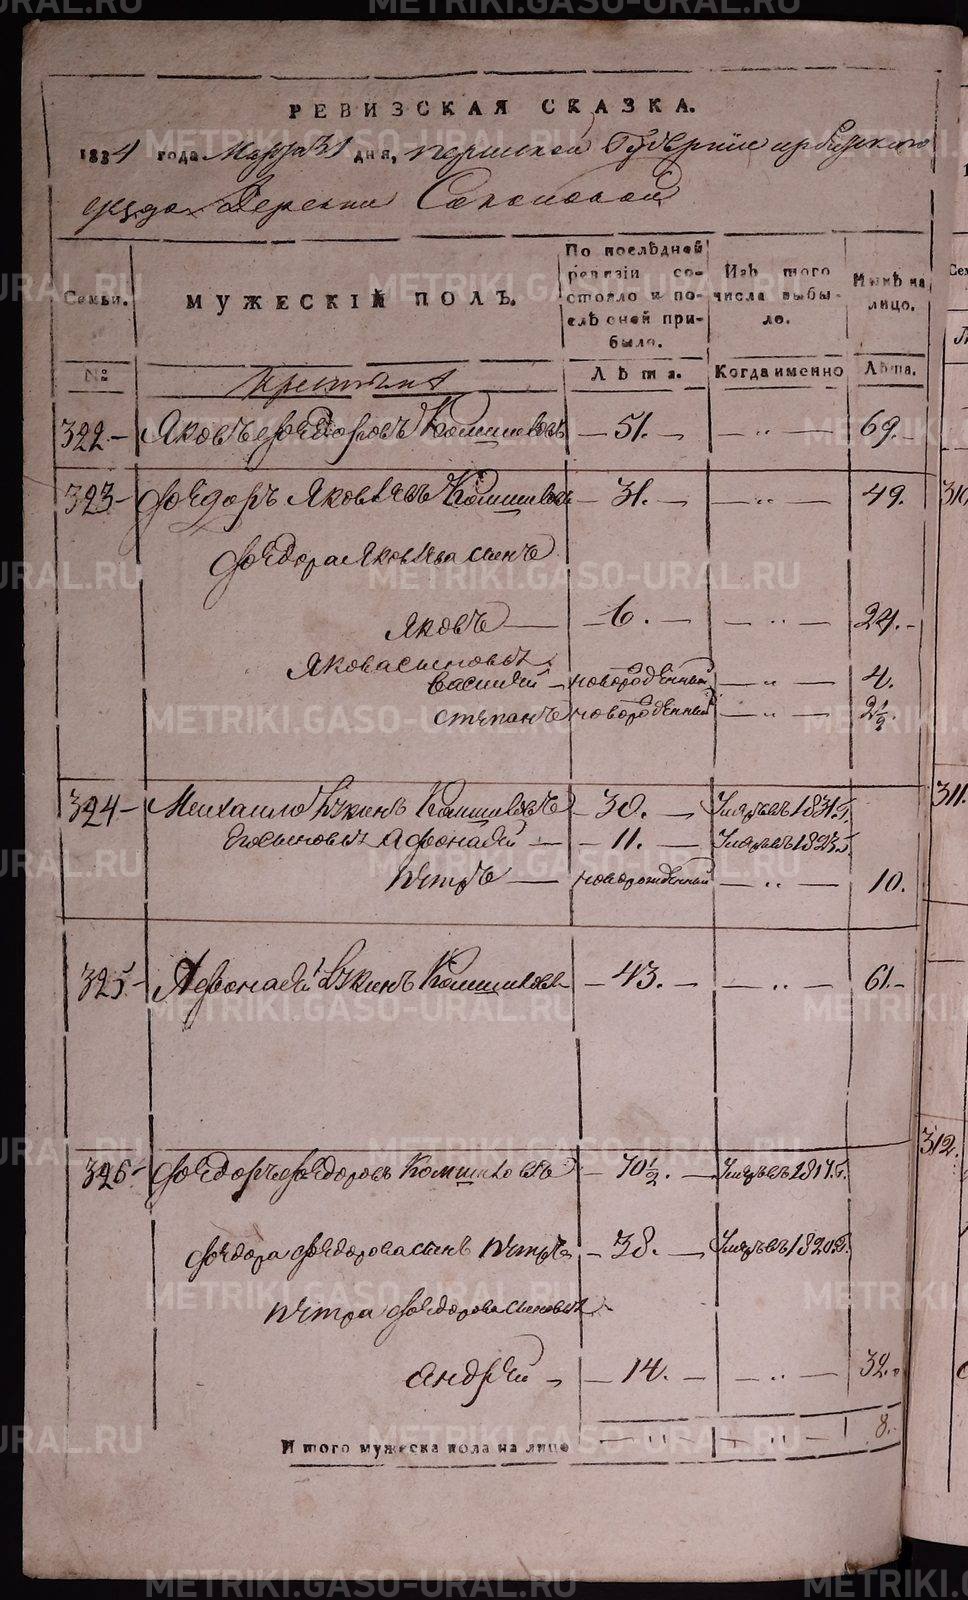 РЕВИЗСКАЯ СКАЗКА.
1834 года Марта 31 дня, пермской Губернии ирбитского
уезда Деревни
Семьи. МУЖЕСКІЙ ПОЛЪ. По послѣдней ревизіи состояло и послѣ оной прибыло. Изъ того числа выбыло. Нынѣ на лицо.
№ крестьяне Лѣта. Когда именно Лѣта.
322. Яковъ Фёдоровъ — 51. — — „ — 69.
323 Фёдоръ Яковлевъ — 31. — — „ — 49.
Фёдора Яковлева сынъ
Яковъ — 6. — — „ — 24.
Якова сыновья
василей новорожденный — „ — 4.
степанъ новорожденный — „ — 2 1/2.
324 Михайло — 30. — Умръ въ 1831 г.
Афонасей — 11. — Умръ въ 1823 г.
пётръ — новорожденный — „ — 10.
325 Афонасей — 43. — — „ — 61.
326 Фёдоръ Фёдоровъ — 70 1/2. — Умръ въ 1817 г.
Фёдора Фёдорова сынъ пётръ — 38. — Умръ въ 1820 г.
петра Фёдорова сыновья
андрей — 14. — — „ — 32.
Итого мужеска пола на лицо — „ — — „ — 8.
310
311.
312.
METRIKI.GASO-URAL.RU